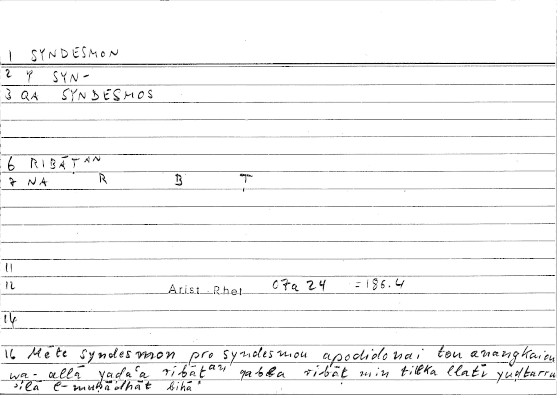 1 SYNDESMON
2 φ SYN-
3 QA SYNDESMOS
6 RIBĀṬAN
7 NA R B Ṭ
11
12 Arist Rhet 07a 24 =186.4
14
16 Mēte syndesmon pro syndesmou apodidonai tou anangkaiou
wa-allā yaḍaʿa ribāṭan qabla ribāṭ min tilka llatī yuḍṭarru
ʾilā l-muḥādhāt bihā